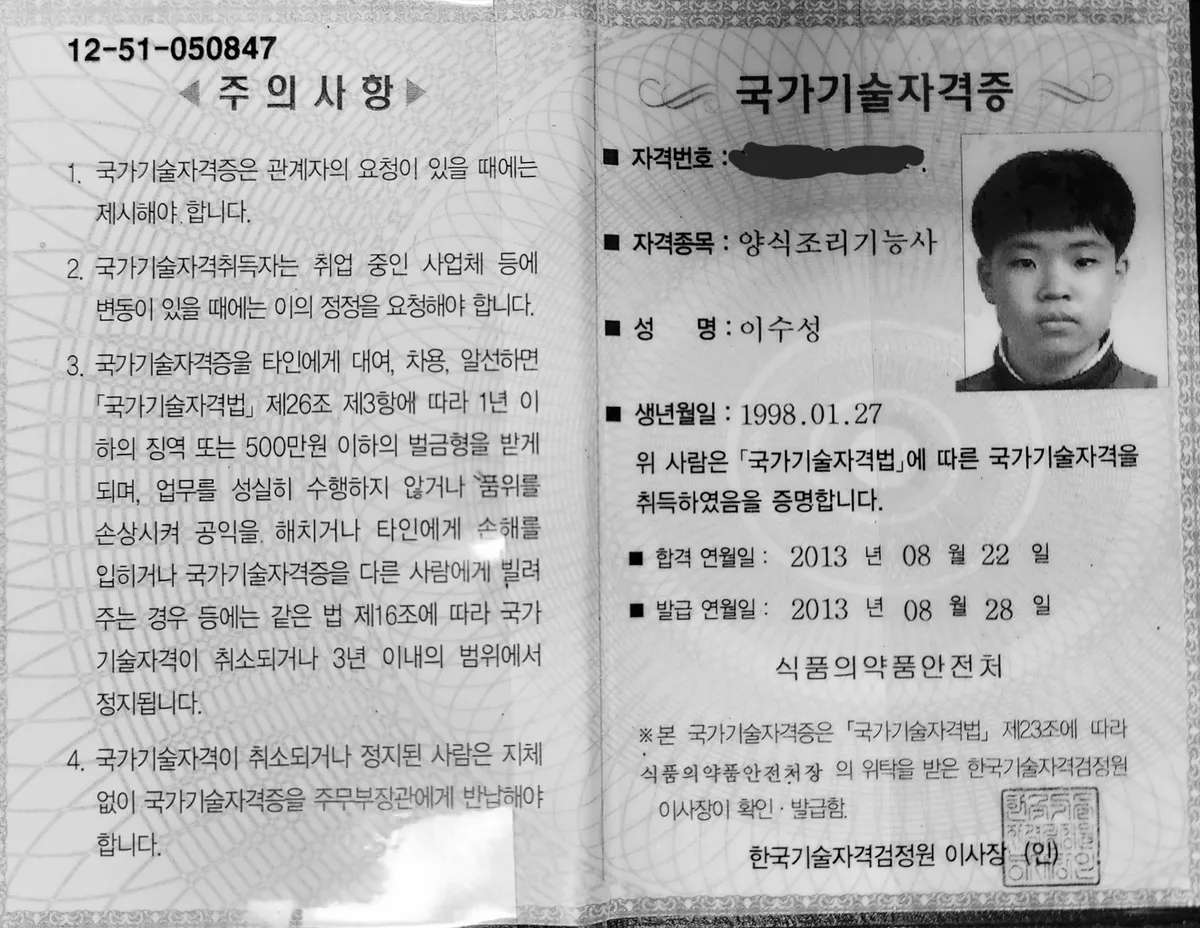 12-51-050847
◀ 주의사항 ▶
1. 국가기술자격증은 관계자의 요청이 있을 때에는
제시해야 합니다.
2. 국가기술자격취득자는 취업 중인 사업체 등에
변동이 있을 때에는 이의 정정을 요청해야 합니다.
3. 국가기술자격증을 타인에게 대여, 차용, 알선하면
「국가기술자격법」 제26조 제3항에 따라 1년 이
하의 징역 또는 500만원 이하의 벌금형을 받게
되며, 업무를 성실히 수행하지 않거나 품위를
손상시켜 공익을 해치거나 타인에게 손해를
입히거나 국가기술자격증을 다른 사람에게 빌려
주는 경우 등에는 같은 법 제16조에 따라 국가
기술자격이 취소되거나 3년 이내의 범위에서
정지됩니다.
4. 국가기술자격이 취소되거나 정지된 사람은 지체
없이 국가기술자격증을 주무부장관에게 반납해야
합니다.
국가기술자격증
■ 자격번호 :
■ 자격종목 : 양식조리기능사
■ 성 명 : 이수성
■ 생년월일 : 1998.01.27
위 사람은 「국가기술자격법」에 따른 국가기술자격을
취득하였음을 증명합니다.
■ 합격 연월일 : 2013 년 08 월 22 일
■ 발급 연월일 : 2013 년 08 월 28 일
식품의약품안전처
※본 국가기술자격증은 「국가기술자격법」 제23조에 따라
식품의약품안전처장 의 위탁을 받은 한국기술자격검정원
이사장이 확인·발급함.
한국기술자격검정원 이사장 (인)